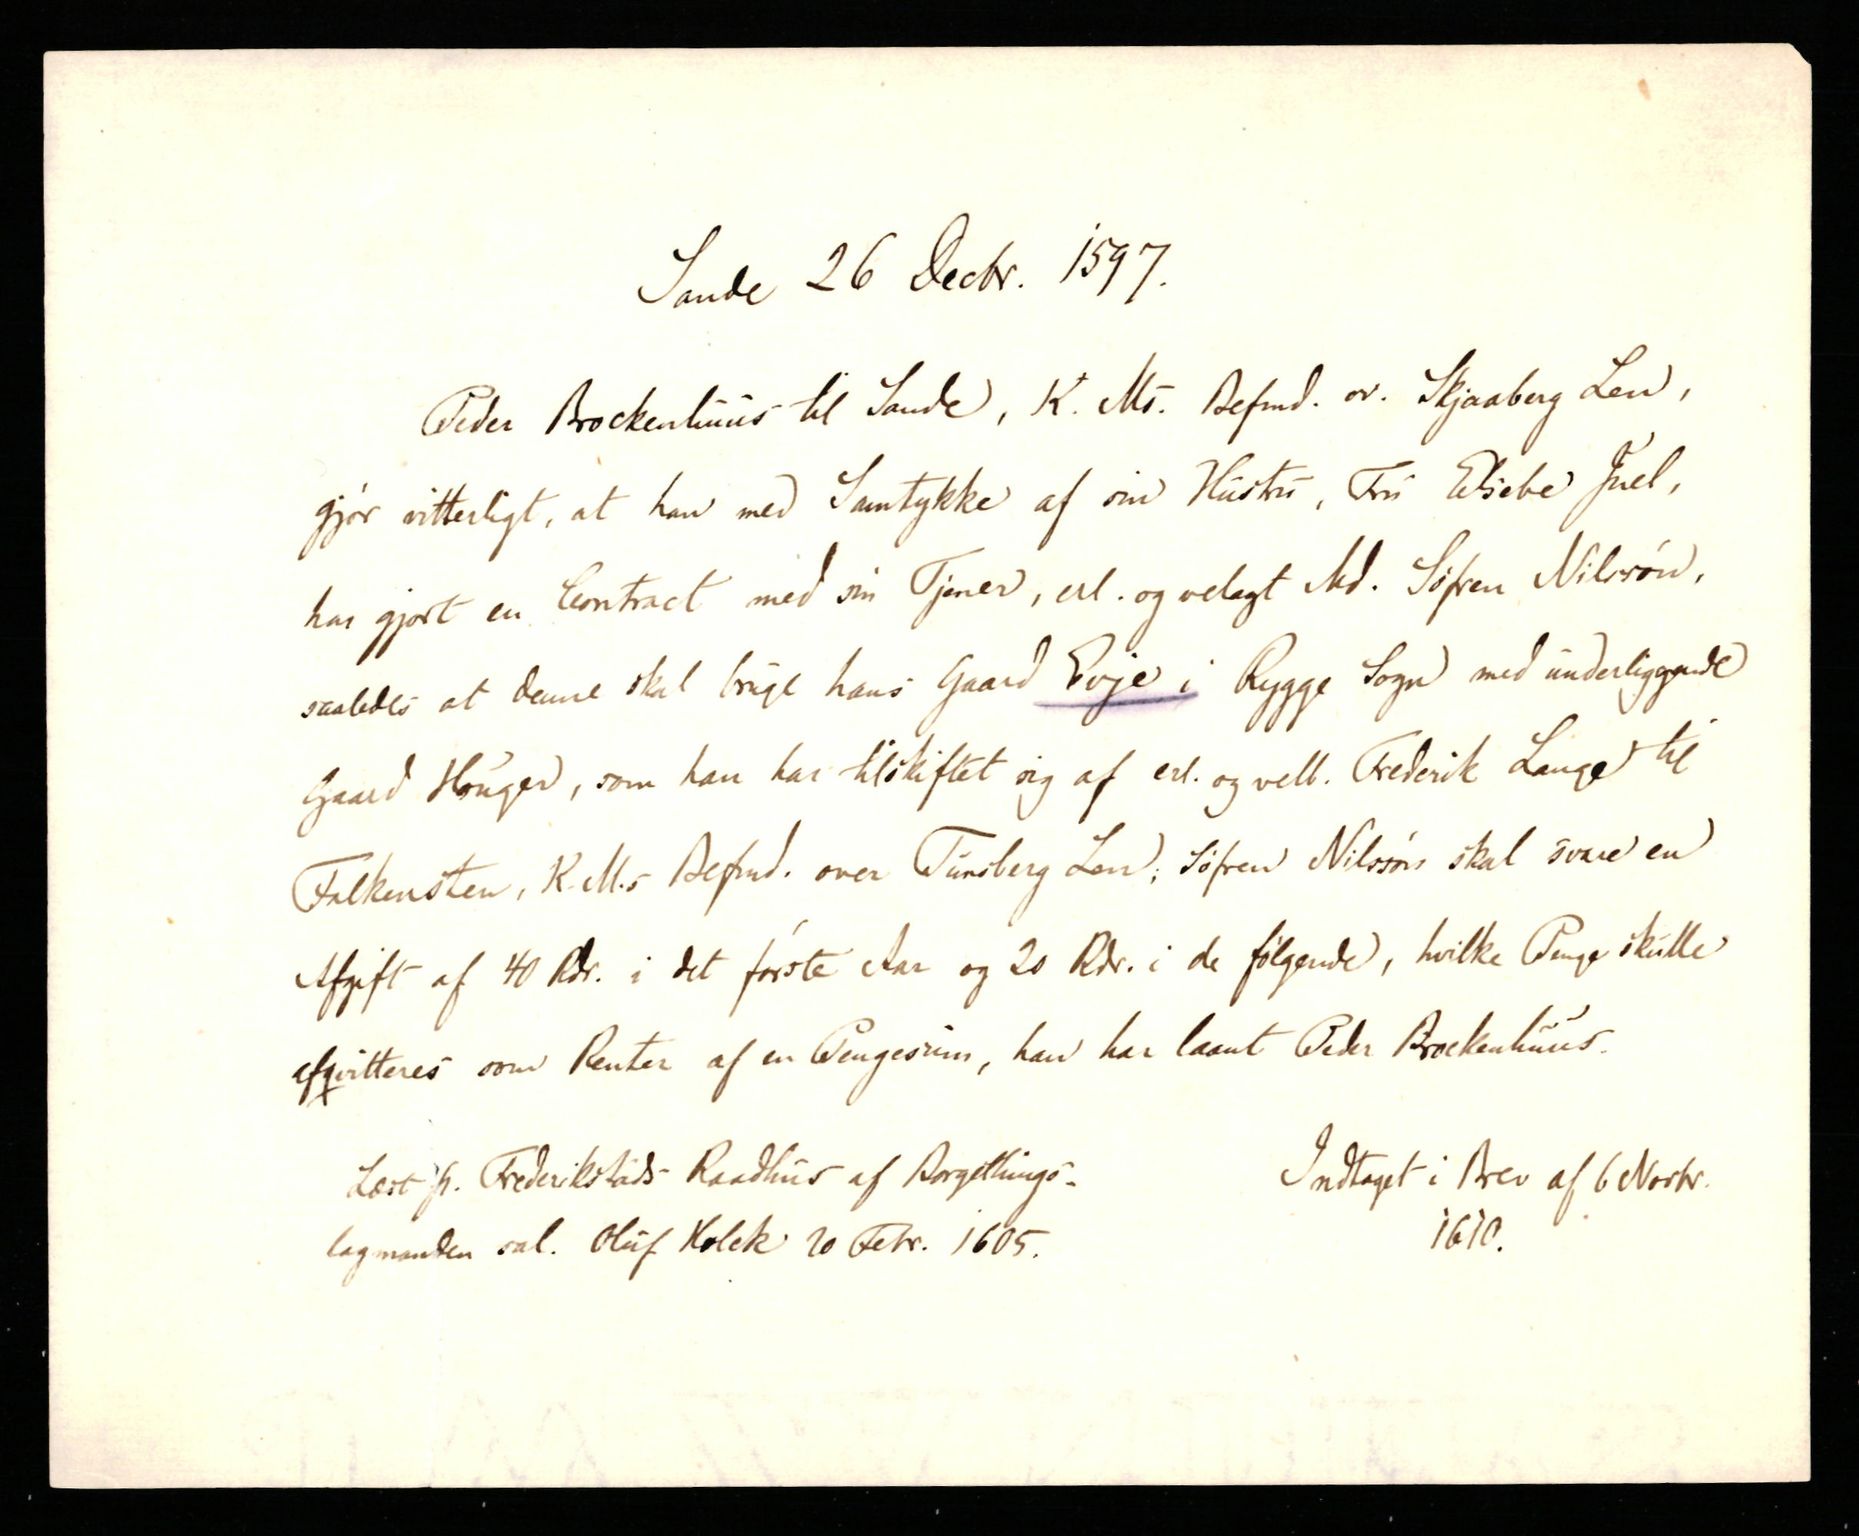 Sande 26 Decbr. 1597.
Peder Brockenhuus til Sande, K. Ms. Befmd. ov. Skjaaberg Len,
gjør vitterligt, at han med Samtykke af sin Hustru, Fru Elsebe Juel,
har gjort en Contract med sin Tjener, erl. og velagt Md. Søfren Nilssøn,
saaledes at denne skal bruge hans Gaard Evje i Rygge Sogn med underliggende
Gaard Houger, som han har tilskiftet sig af erl. og velb. Frederik Lange til
Falkensten, K. M.s Befmd. over Tunsberg Len; Søfren Nilssøn skal svare en
Afgift af 40 Rdr. i det første Aar og 20 Rdr. i de følgende, hvilke Penge skulle
afqvitteres som Renter af en Pengesum, han har laant Peder Brockenhuus.
Læst p. Frederikstads Raadhus af Borgethings-
lagmanden sal. Oluf Kolck 20 Febr. 1605.
Indtaget i Brev af 6 Novbr.
1610.